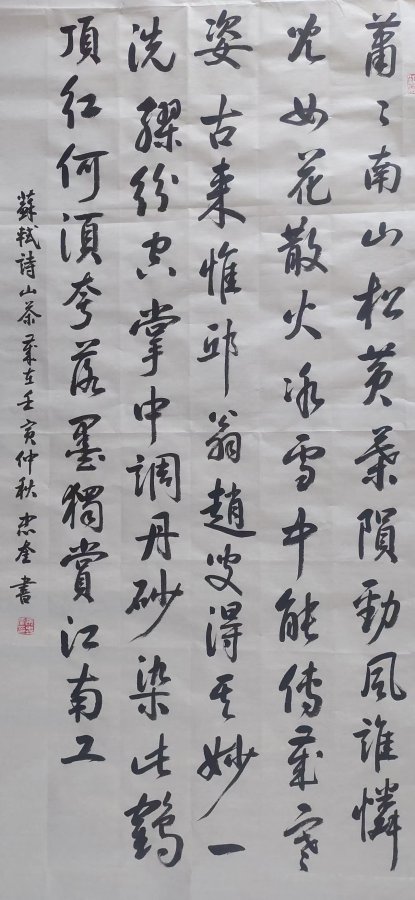 蕭〻南山松黄葉隕勁风誰憐
児女花散火冰雪中能傳歲寒
姿古来惟邱翁趙叟得其妙一
洗繆紛空掌中調丹砂染此鶴
頂紅何須夸落墨獨賞江南工
蘇軾詩山茶 歲在壬寅仲秋 忠奎書